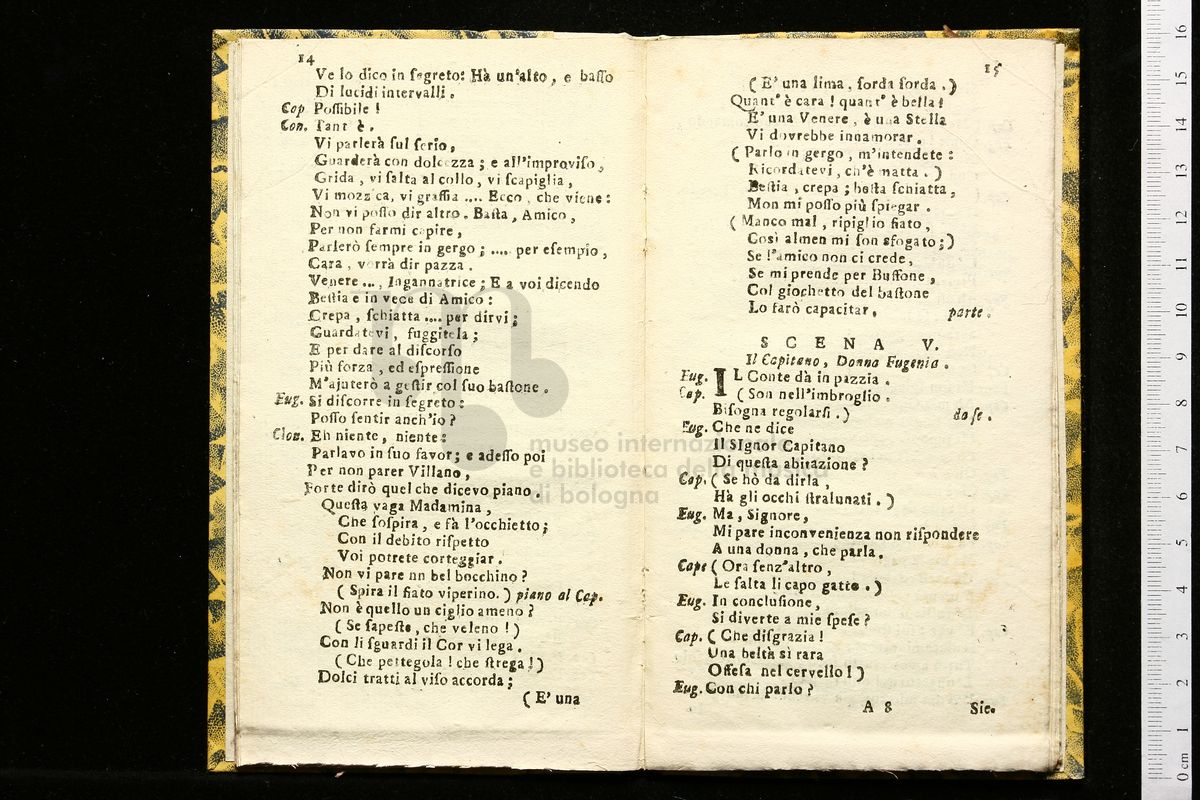 14
Ve lo dico in segreto: Hà un'alto, e basso
Di lucidi intervalli.
Cap Possibile!
Con. Tant' è.
Vi parlerà sul serio,
Guarderà con dolcezza; e all'improviso,
Grida, vi salta al collo, vi scapiglia,
Vi mozzica, vi graffia .... Ecco, che viene:
Non vi posso dir altro. Basta, Amico,
Per non farmi capire,
Parlerò sempre in gergo; .... per esempio,
Cara, vorrà dir pazza.
Venere ..., Ingannatrice; E a voi dicendo
Bestia e in vece di Amico:
Crepa, schiatta .... per dirvi;
Guardatevi, fuggitela;
E per dare al discorso
Più forza, ed espressione
M'ajuterò a gestir col suo bastone.
Eug. Si discorre in segreto:
Posso sentir anch'io?
Con. Eh niente, niente:
Parlavo in suo favor; e adesso poi
Per non parer Villano,
Forte dirò quel che dicevo piano.
Questa vaga Madamina,
Che sospira, e fà l'occhietto;
Con il debito rispetto
Voi potrete corteggiar.
Non vi pare nn bel bocchino?
(Spira il fiato viperino.) piano al Cap.
Non è quello un ciglio ameno?
(Se sapeste, che veleno!)
Con li sguardi il Cor vi lega.
(Che pettegola! che strega!)
Dolci tratti al viso accorda;
(E' una
15
(E' una lima, sorda sorda.)
Quant' è cara! quant' è bella!
E' una Venere, è una Stella
Vi dovrebbe innamorar.
(Parlo in gergo, m'intendete:
Ricordatevi, ch'è matta.)
Bestia, crepa; bestia schiatta,
Mon mi posso più spiegar.
(Manco mal, ripiglio fiato,
Così almen mi son sfogato;)
Se l'amico non ci crede,
Se mi prende per Buffone,
Col giochetto del bastone
Lo farò capacitar. parte.
SCENA V.
Il Capitano, Donna Eugenia.
Eug. IL Conte dà in pazzia.
Cap. (Son nell'imbroglio.
Bisogna regolarsi.) da se.
Eug. Che ne dice
Il SIgnor Capitano
Di questa abitazione?
Cap. (Se hò da dirla,
Hà gli occhi stralunati.)
Eug. Ma, Signore,
Mi pare inconvenienza non rispondere
A una donna, che parla.
Cap. (Ora senz'altro,
Le salta li capo gatto.)
Eug. In conclusione,
Si diverte a mie spese?
Cap. (Che disgrazia!
Una beltà sì rara
Offesa nel cervello!)
Eug. Con chi parlo?
A 8 Sie.
museo internazionale
e biblioteca della musica
di bologna
0 cm 1 2 3 4 5 6 7 8 9 10 11 12 13 14 15 16